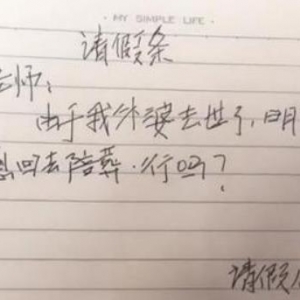 · MY SIMPLE LIFE ·
请假条
老师：
由于我外婆去世了，明
想回去陪葬·行吗？
请假